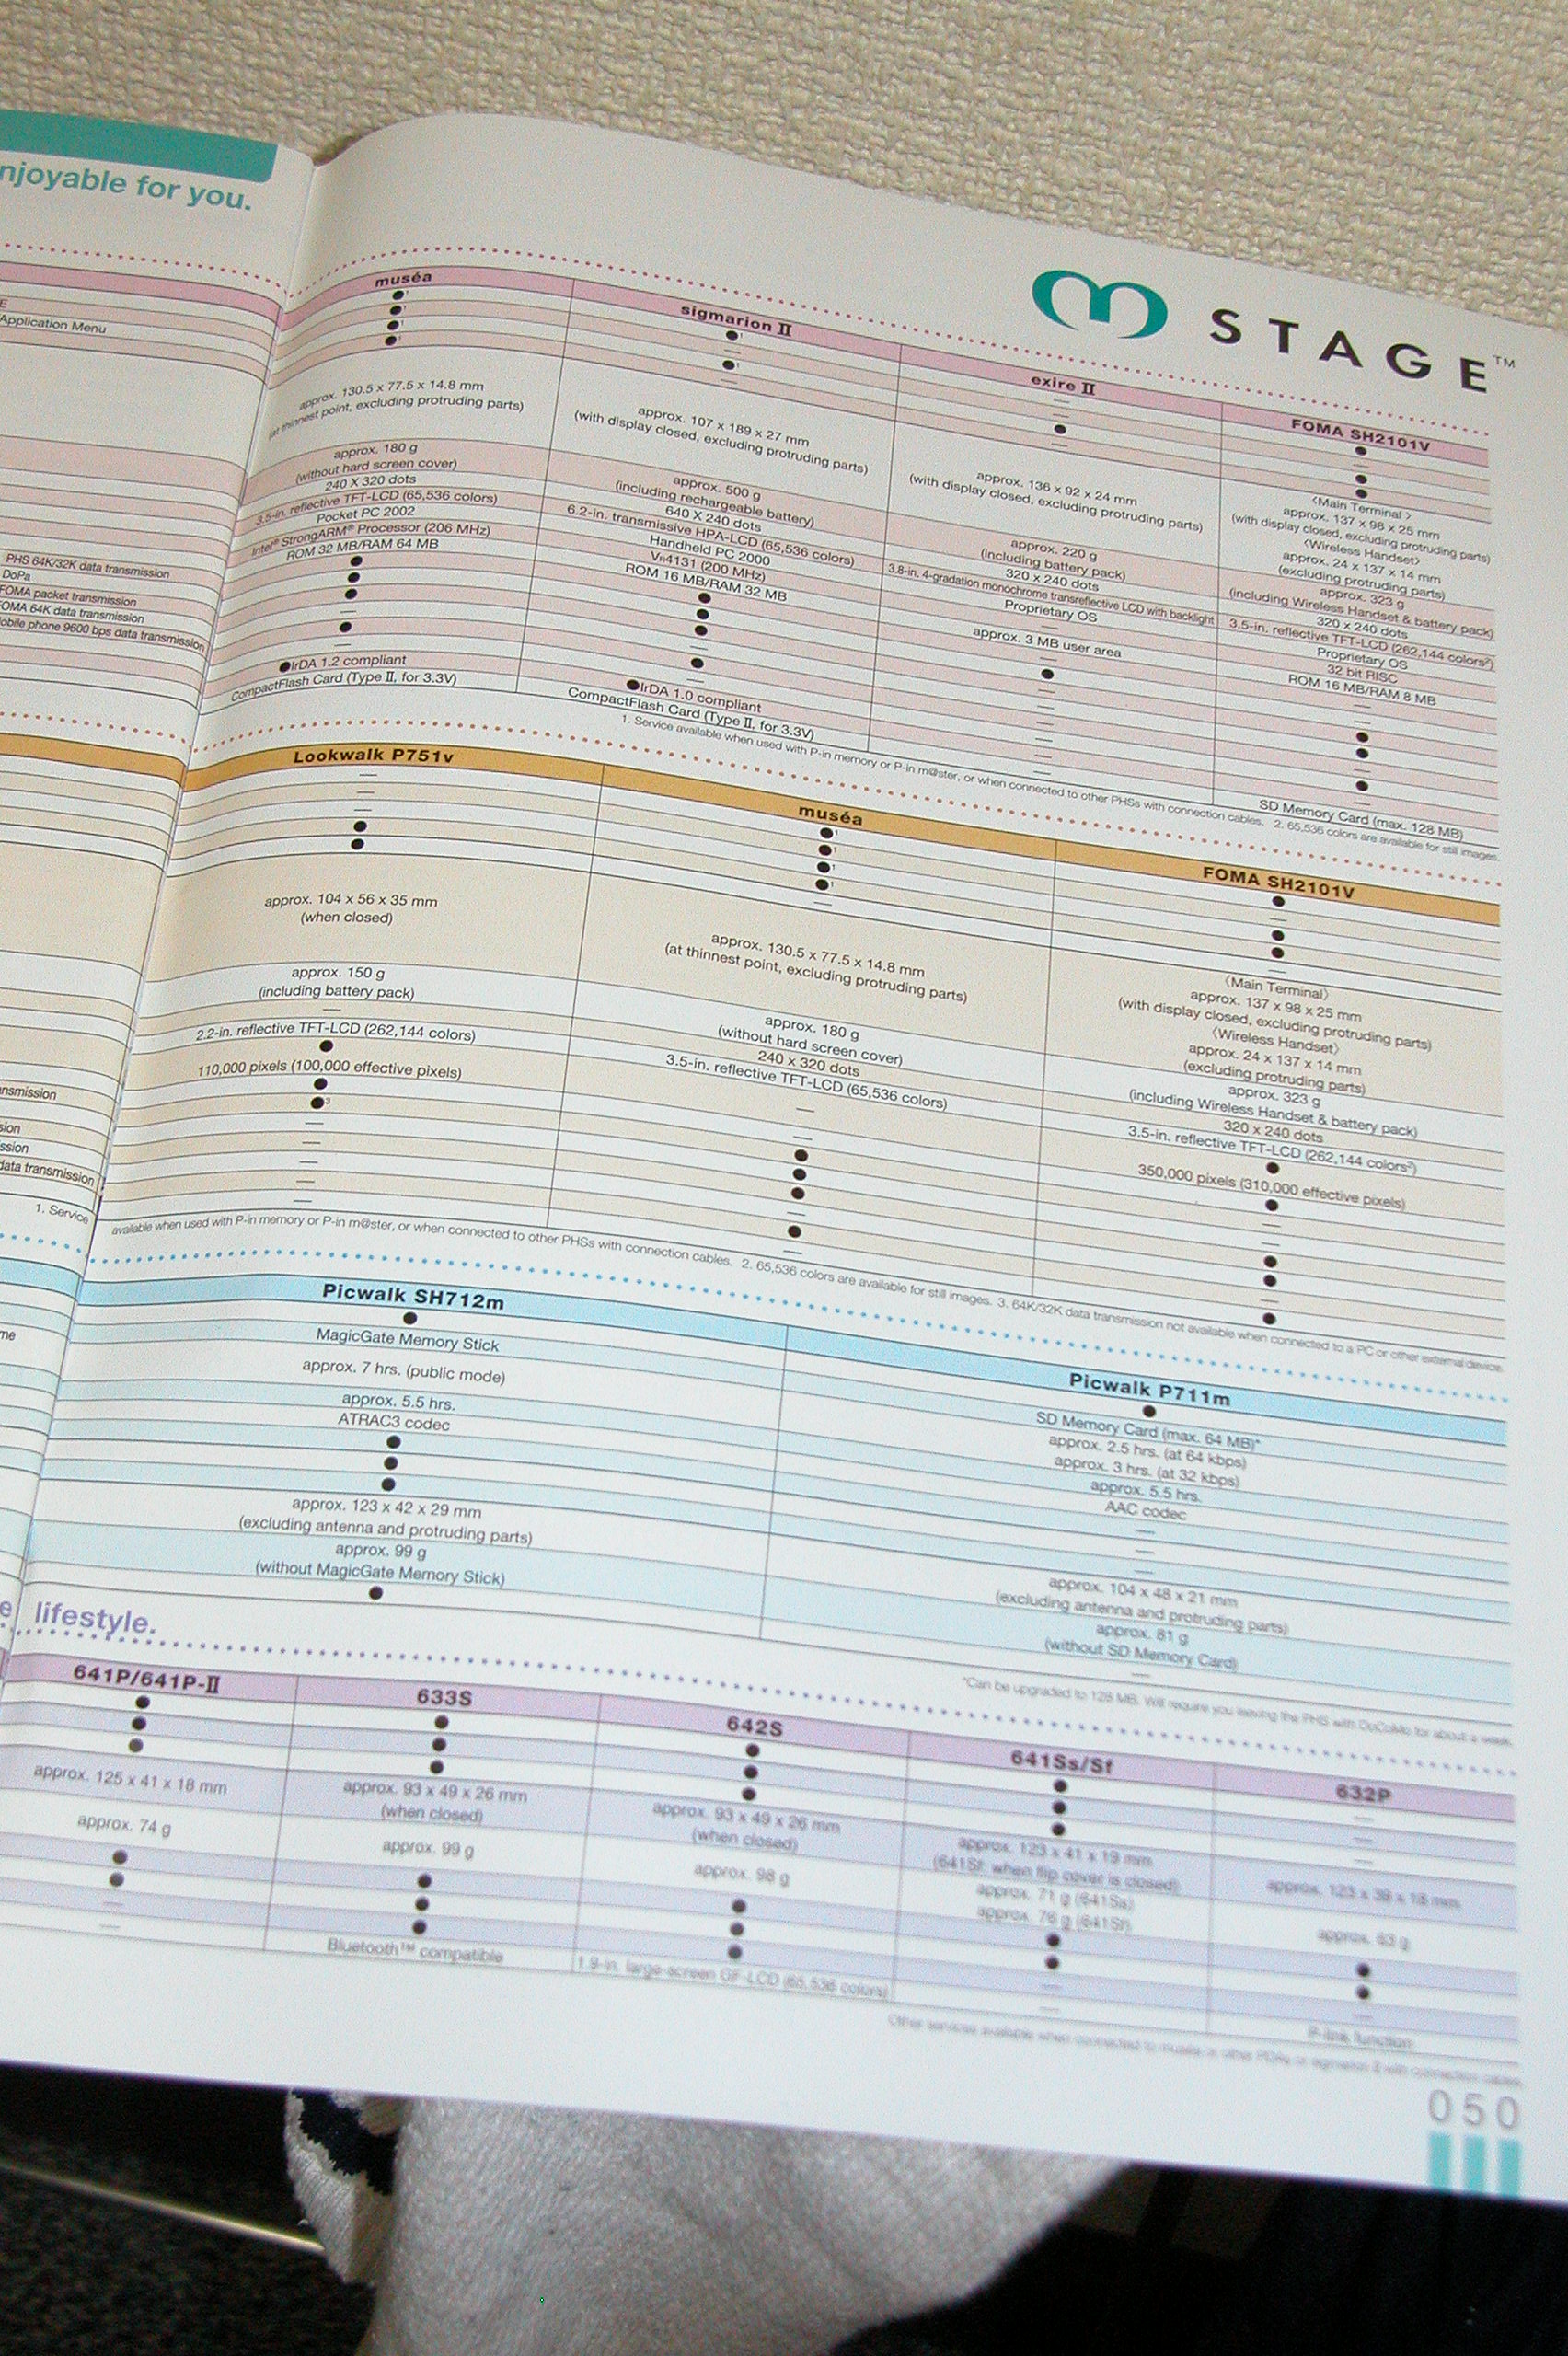 njoyable for you.
M STAGE™
E
Application Menu
PHS 64K/32K data transmission
DoPa
FOMA packet transmission
FOMA 64K data transmission
obile phone 9600 bps data transmission
muséa
●1
●1
●1
●1
approx. 130.5 x 77.5 x 14.8 mm
(at thinnest point, excluding protruding parts)
approx. 180 g
(without hard screen cover)
240 X 320 dots
3.5-in. reflective TFT-LCD (65,536 colors)
Pocket PC 2002
Intel® StrongARM® Processor (206 MHz)
ROM 32 MB/RAM 64 MB
●
●
●
—
●
—
●IrDA 1.2 compliant
CompactFlash Card (Type II, for 3.3V)
sigmarion II
●1
—
●1
—
approx. 107 x 189 x 27 mm
(with display closed, excluding protruding parts)
approx. 500 g
(including rechargeable battery)
640 X 240 dots
6.2-in. transmissive HPA-LCD (65,536 colors)
Handheld PC 2000
VR4131 (200 MHz)
ROM 16 MB/RAM 32 MB
●
●
●
—
●
—
●IrDA 1.0 compliant
CompactFlash Card (Type II, for 3.3V)
exire II
—
—
●
—
approx. 136 x 92 x 24 mm
(with display closed, excluding protruding parts)
approx. 220 g
(including battery pack)
320 x 240 dots
3.8-in. 4-gradation monochrome transreflective LCD with backlight
Proprietary OS
—
approx. 3 MB user area
—
●
—
—
—
—
—
—
FOMA SH2101V
●
—
●
●
〈Main Terminal〉
approx. 137 x 98 x 25 mm
(with display closed, excluding protruding parts)
〈Wireless Handset〉
approx. 24 x 137 x 14 mm
(excluding protruding parts)
approx. 323 g
(including Wireless Handset & battery pack)
320 x 240 dots
3.5-in. reflective TFT-LCD (262,144 colors2)
Proprietary OS
32 bit RISC
ROM 16 MB/RAM 8 MB
—
—
●
●
—
●
—
SD Memory Card (max. 128 MB)
1. Service available when used with P-in memory or P-in m@ster, or when connected to other PHSs with connection cables. 2. 65,536 colors are available for still images.
nsmission
sion
ssion
data transmission
Lookwalk P751v
—
—
—
●
●
approx. 104 x 56 x 35 mm
(when closed)
approx. 150 g
(including battery pack)
—
2.2-in. reflective TFT-LCD (262,144 colors)
●
110,000 pixels (100,000 effective pixels)
●
●3
—
—
—
—
—
muséa
●1
●1
●1
●1
—
approx. 130.5 x 77.5 x 14.8 mm
(at thinnest point, excluding protruding parts)
approx. 180 g
(without hard screen cover)
240 x 320 dots
3.5-in. reflective TFT-LCD (65,536 colors)
—
—
●
●
●
—
●
—
FOMA SH2101V
●
—
●
●
—
〈Main Terminal〉
approx. 137 x 98 x 25 mm
(with display closed, excluding protruding parts)
〈Wireless Handset〉
approx. 24 x 137 x 14 mm
(excluding protruding parts)
approx. 323 g
(including Wireless Handset & battery pack)
320 x 240 dots
3.5-in. reflective TFT-LCD (262,144 colors2)
●
350,000 pixels (310,000 effective pixels)
●
—
—
●
●
—
●
1. Service available when used with P-in memory or P-in m@ster, or when connected to other PHSs with connection cables. 2. 65,536 colors are available for still images. 3. 64K/32K data transmission not available when connected to a PC or other external device.
me
Picwalk SH712m
●
MagicGate Memory Stick
approx. 7 hrs. (public mode)
approx. 5.5 hrs.
ATRAC3 codec
●
●
●
approx. 123 x 42 x 29 mm
(excluding antenna and protruding parts)
approx. 99 g
(without MagicGate Memory Stick)
●
Picwalk P711m
●
SD Memory Card (max. 64 MB)*
approx. 2.5 hrs. (at 64 kbps)
approx. 3 hrs. (at 32 kbps)
approx. 5.5 hrs.
AAC codec
—
—
—
approx. 104 x 48 x 21 mm
(excluding antenna and protruding parts)
approx. 81 g
(without SD Memory Card)
—
*Can be upgraded to 128 MB. Will require you leaving the PHS with DoCoMo for about a week.
e lifestyle.
641P/641P-II
●
●
●
approx. 125 x 41 x 18 mm
approx. 74 g
●
●
—
—
633S
●
●
●
approx. 93 x 49 x 26 mm
(when closed)
approx. 99 g
●
●
●
Bluetooth™ compatible
642S
●
●
●
approx. 93 x 49 x 26 mm
(when closed)
approx. 98 g
●
●
●
1.9-in. large-screen GF-LCD (65,536 colors)
641Ss/Sf
●
●
●
approx. 123 x 41 x 19 mm
(641Sf: when flip cover is closed)
approx. 71 g (641Ss)
approx. 76 g (641Sf)
●
●
—
—
632P
—
—
—
approx. 123 x 39 x 18 mm
approx. 63 g
●
●
—
P-link function
Other services available when connected to muséa or other PDAs or sigmarion II with connection cables.
050